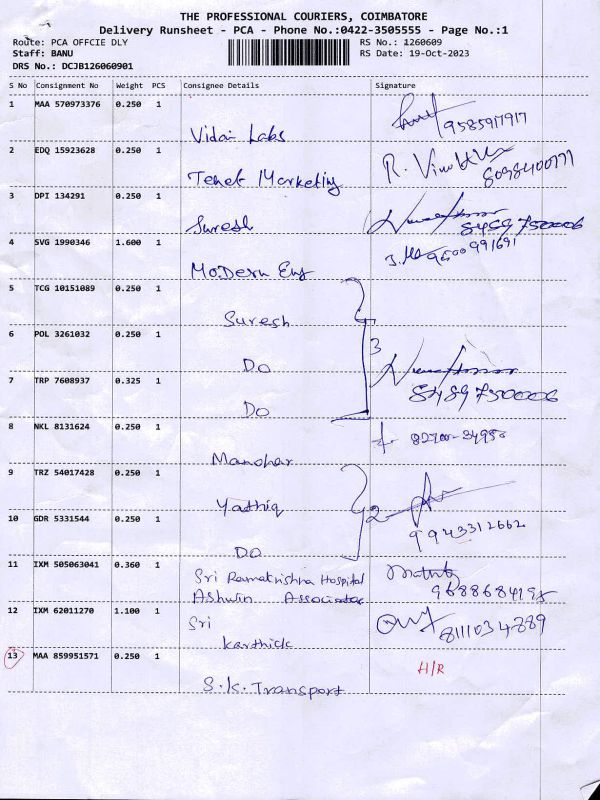 THE PROFESSIONAL COURIERS, COIMBATORE
Delivery Runsheet - PCA - Phone No.:0422-3505555 - Page No.:1
Route: PCA OFFCIE DLY RS No.: 1260609
Staff: BANU RS Date: 19-Oct-2023
DRS No.: DCJB126060901
S No Consignment No Weight PCS Consignee Details Signature
1 MAA 570973376 0.250 1
Vidai Labs 9585917917
2 EDQ 15923628 0.250 1
Tenet Marketing R.
3 DPI 134291 0.250 1
Suresh 8489750006
4 SVG 1990346 1.600 1
MoDern Eng 9500991691
5 TCG 10151089 0.250 1
Suresh
6 POL 3261032 0.250 1
Do 3
7 TRP 7608937 0.325 1
Do 8489750006
8 NKL 8131624 0.250 1
Manohar
9 TRZ 54017428 0.250 1
Yathiq 2
10 GDR 5331544 0.250 1
Do 9943312662
11 IXM 505063041 0.360 1
Sri Ramakrishna Hospital
Ashwin Associates
12 IXM 62011270 1.100 1
Sri
Karthick 8111034889
13 MAA 859951571 0.250 1
S.K. Transport H/R